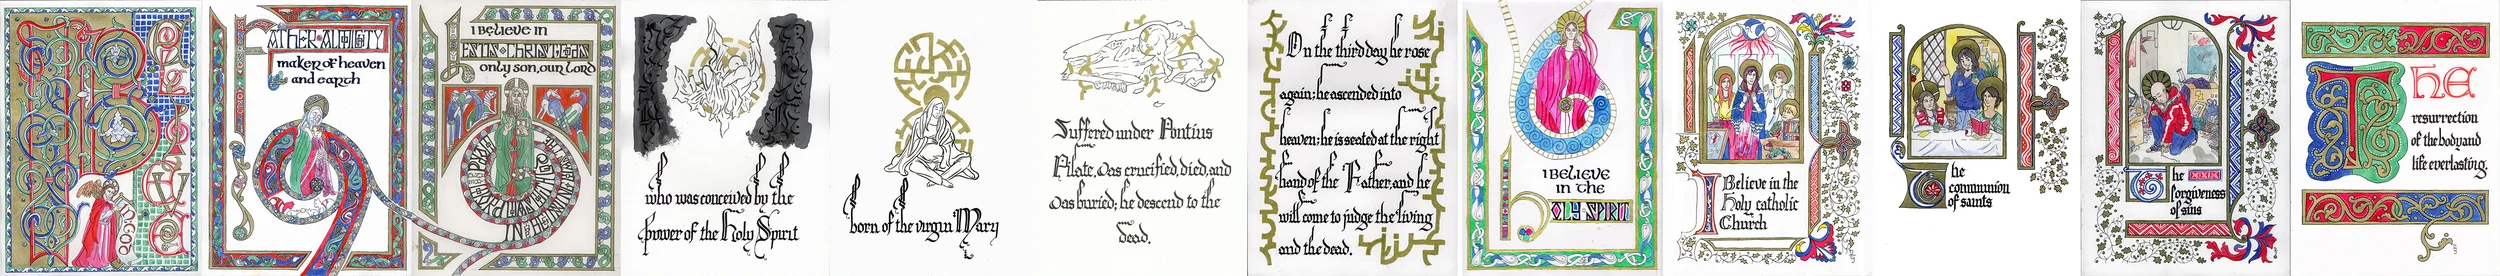 I BELIEVE
IN GOD
FATHER ALMIGHTY
maker of heaven
and earth
I BELIEVE IN
JESUS CHRIST GOD'S
only son, our Lord
who was conceived by the
power of the Holy Spirit
born of the virgin Mary
Suffered under Pontius
Pilate, was crucified, died, and
was buried; he descend to the
dead.
On the third day he rose
again; he ascended into
heaven; he is seated at the right
hand of the Father, and he
will come to judge the living
and the dead.
I BELIEVE
IN THE
HOLY SPIRIT
I Believe in the
Holy catholic
Church
The
communion
of saints
The
forgiveness
of sins
THE
resurrection
of the body and
life everlasting.